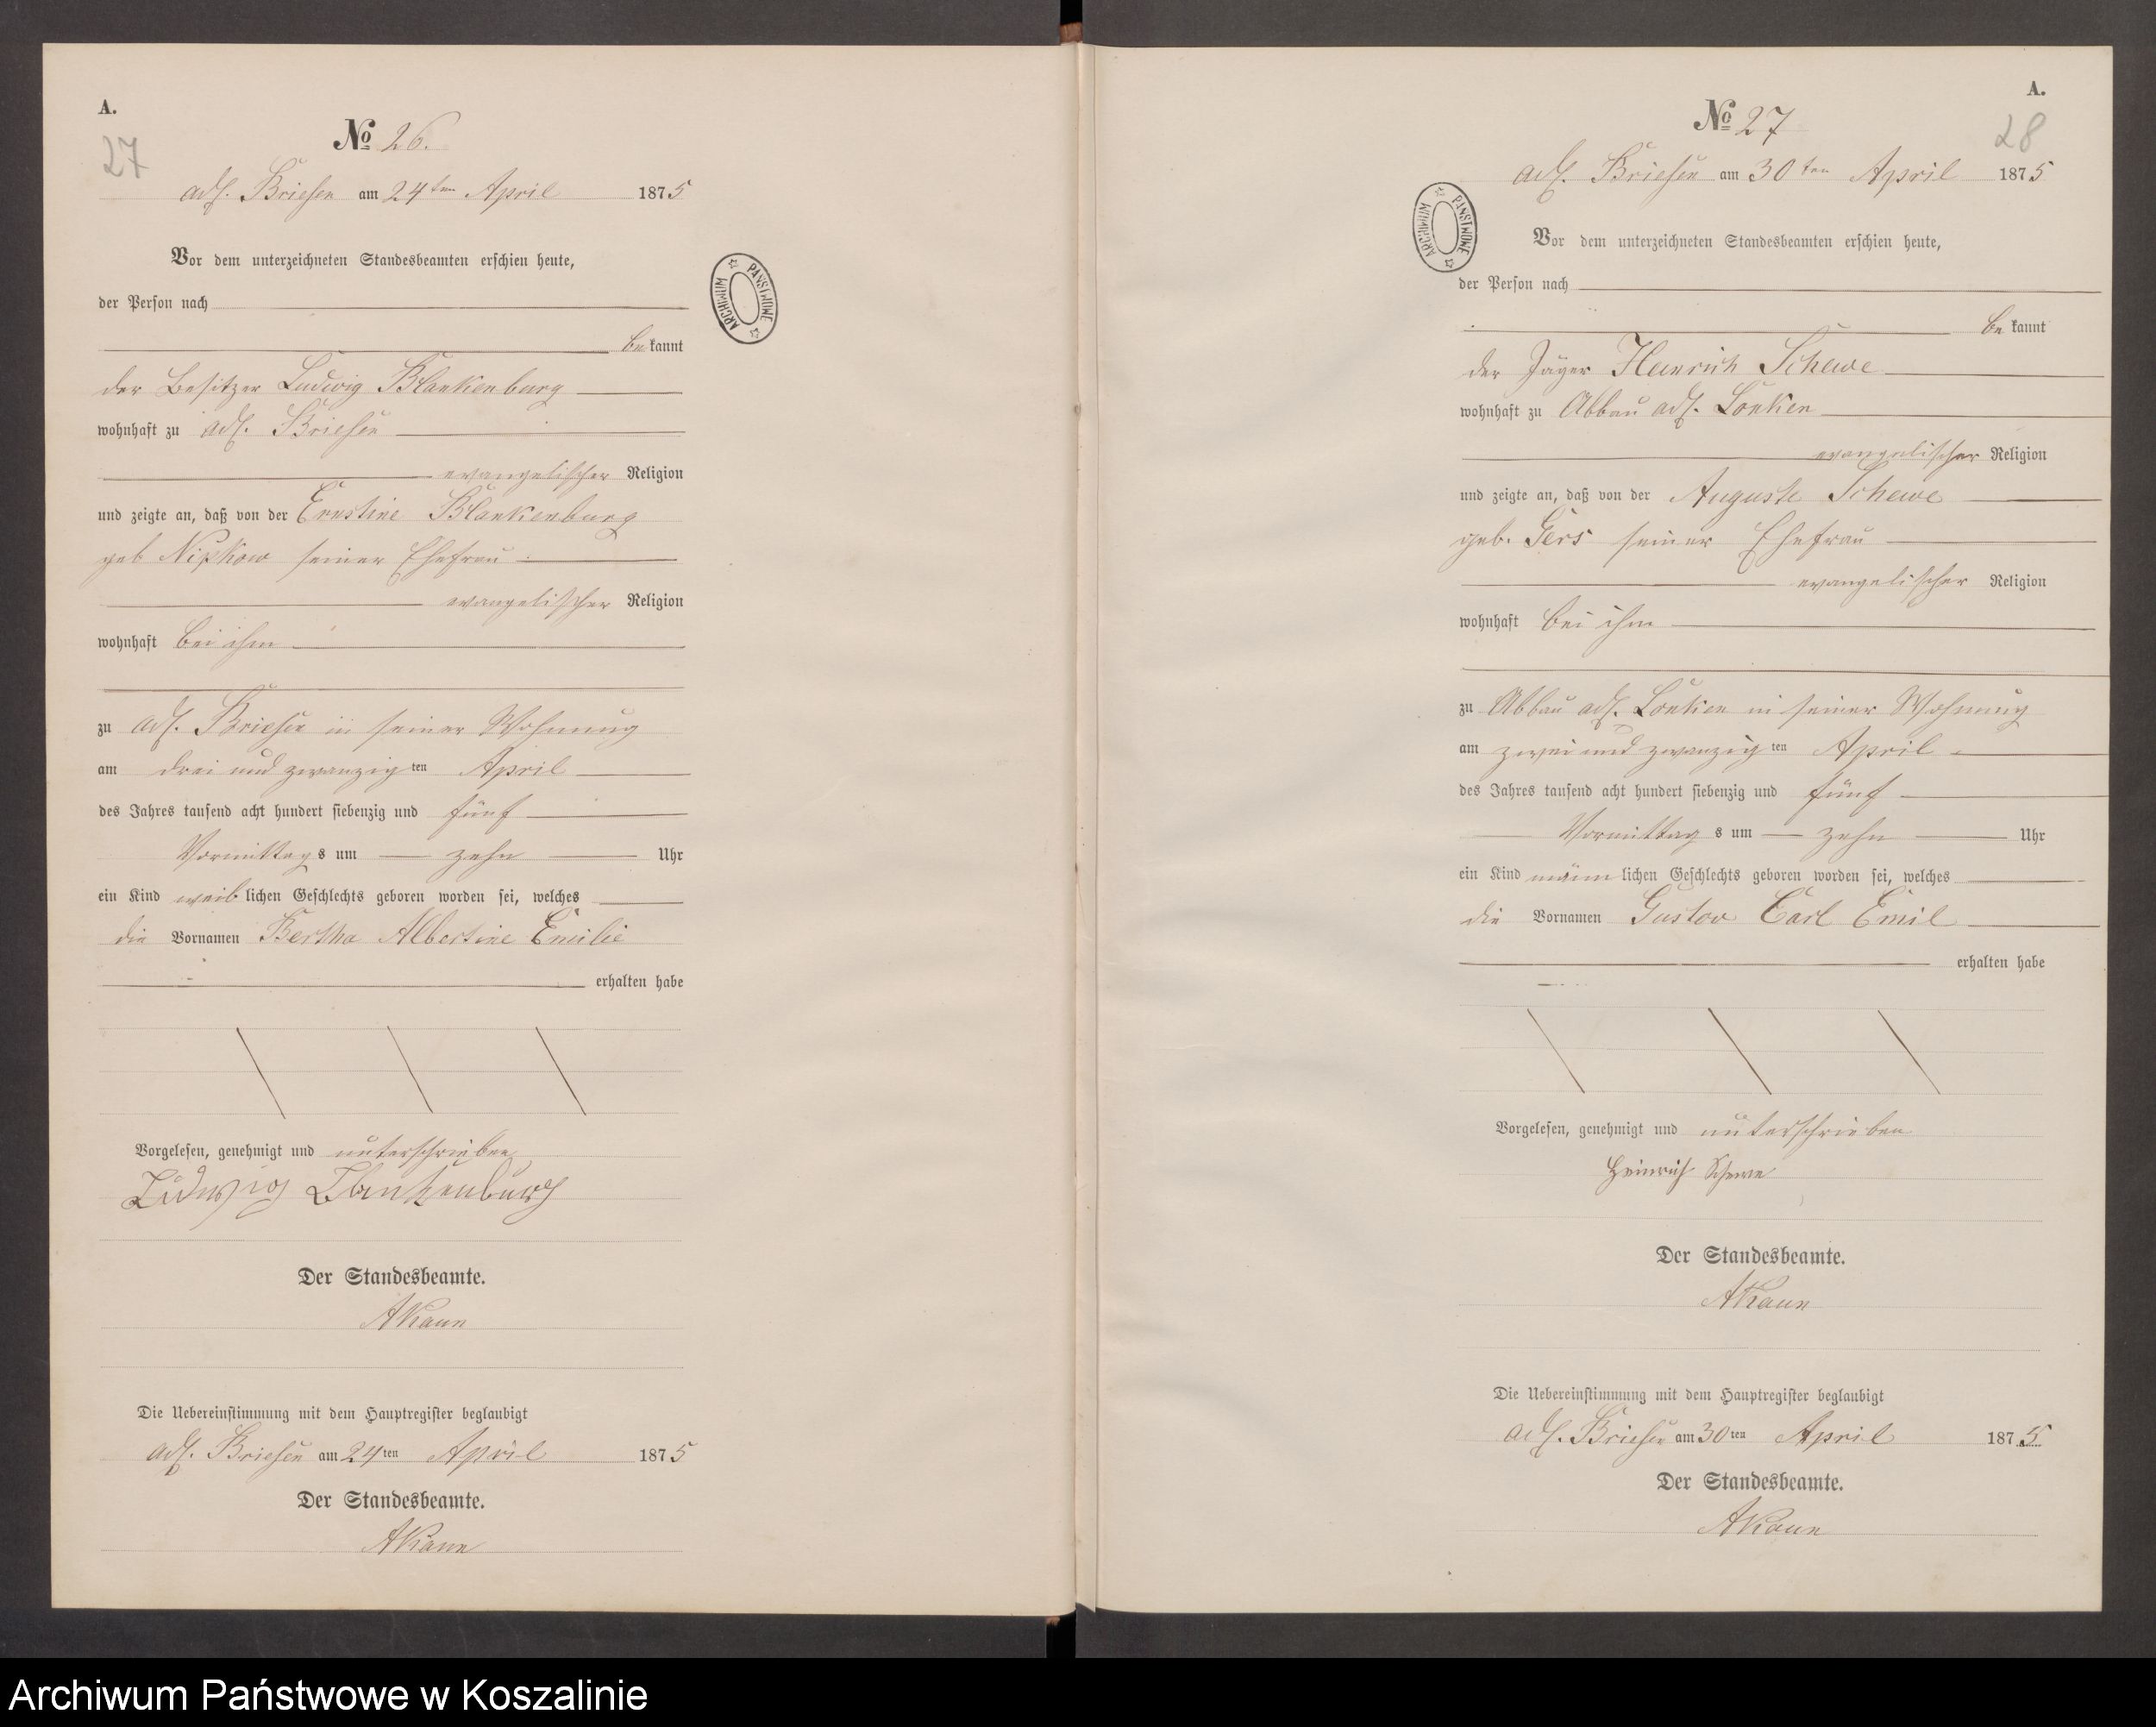 A.
27
No 26.
adl. Briesen am 24ten April 1875
Vor dem unterzeichneten Standesbeamten erschien heute,
der Person nach
bekannt
der Besitzer Ludwig Blankenburg
wohnhaft zu adl. Briesen
evangelischer Religion
und zeigte an, daß von der Ernstine Blankenburg
geb Nipkow seiner Ehefrau
evangelischer Religion
wohnhaft bei ihm
zu adl. Briesen in seiner Wohnung
am drei und zwanzigten April
des Jahres tausend acht hundert siebenzig und fünf
Vormittags um zehn Uhr
ein Kind weiblichen Geschlechts geboren worden sei, welches
die Vornamen Bertha Albertine Emilie
erhalten habe
Vorgelesen, genehmigt und unterschrieben
Ludwig Blankenburg
Der Standesbeamte.
AKaun
Die Uebereinstimmung mit dem Hauptregister beglaubigt
adl. Briesen am 24ten April 1875
Der Standesbeamte.
AKaun
ARCHIWUM PAŃSTWOWE
A.
28
No 27
adl. Briesen am 30ten April 1875
ARCHIWUM PAŃSTWOWE
Vor dem unterzeichneten Standesbeamten erschien heute,
der Person nach
bekannt
der Jäger Heinrich Schewe
wohnhaft zu Abbau adl. Lonken
evangelischer Religion
und zeigte an, daß von der Auguste Schewe
geb. Gers seiner Ehefrau
evangelischer Religion
wohnhaft bei ihm
zu Abbau adl. Lonken in seiner Wohnung
am zwei und zwanzigten April
des Jahres tausend acht hundert siebenzig und fünf
Vormittags um zehn Uhr
ein Kind männlichen Geschlechts geboren worden sei, welches
die Vornamen Gustav Carl Emil
erhalten habe
Vorgelesen, genehmigt und unterschrieben
Heinrich Schewe
Der Standesbeamte.
AKaun
Die Uebereinstimmung mit dem Hauptregister beglaubigt
adl. Briesen am 30ten April 1875
Der Standesbeamte.
AKaun
Archiwum Państwowe w Koszalinie